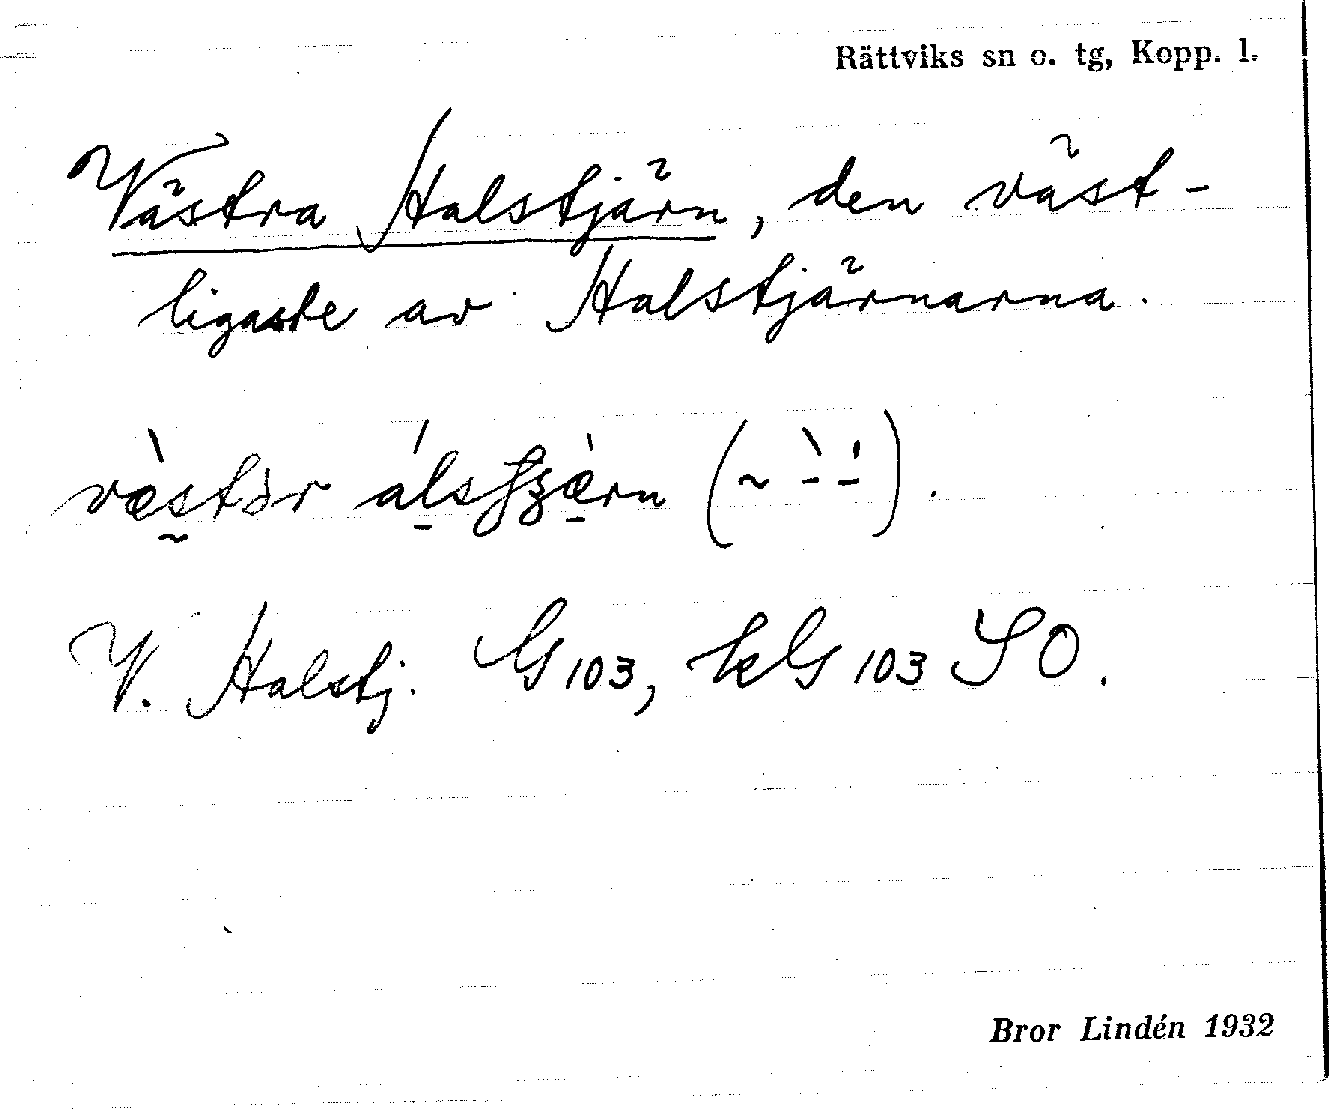 Rättviks sn o. tg, Kopp. l.
Västra Halstjärn, den väst-
ligaste av Halstjärnarna.
V. Halstj. G 103, kG 103 SO.
Bror Lindén 1932